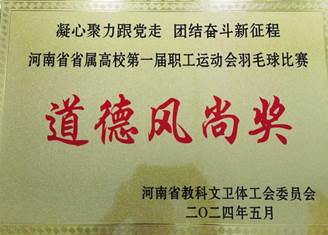 凝心聚力跟党走 团结奋斗新征程
河南省省属高校第一届职工运动会羽毛球比赛
道德风尚奖
河南省教科文卫体工会委员会
二〇二四年五月